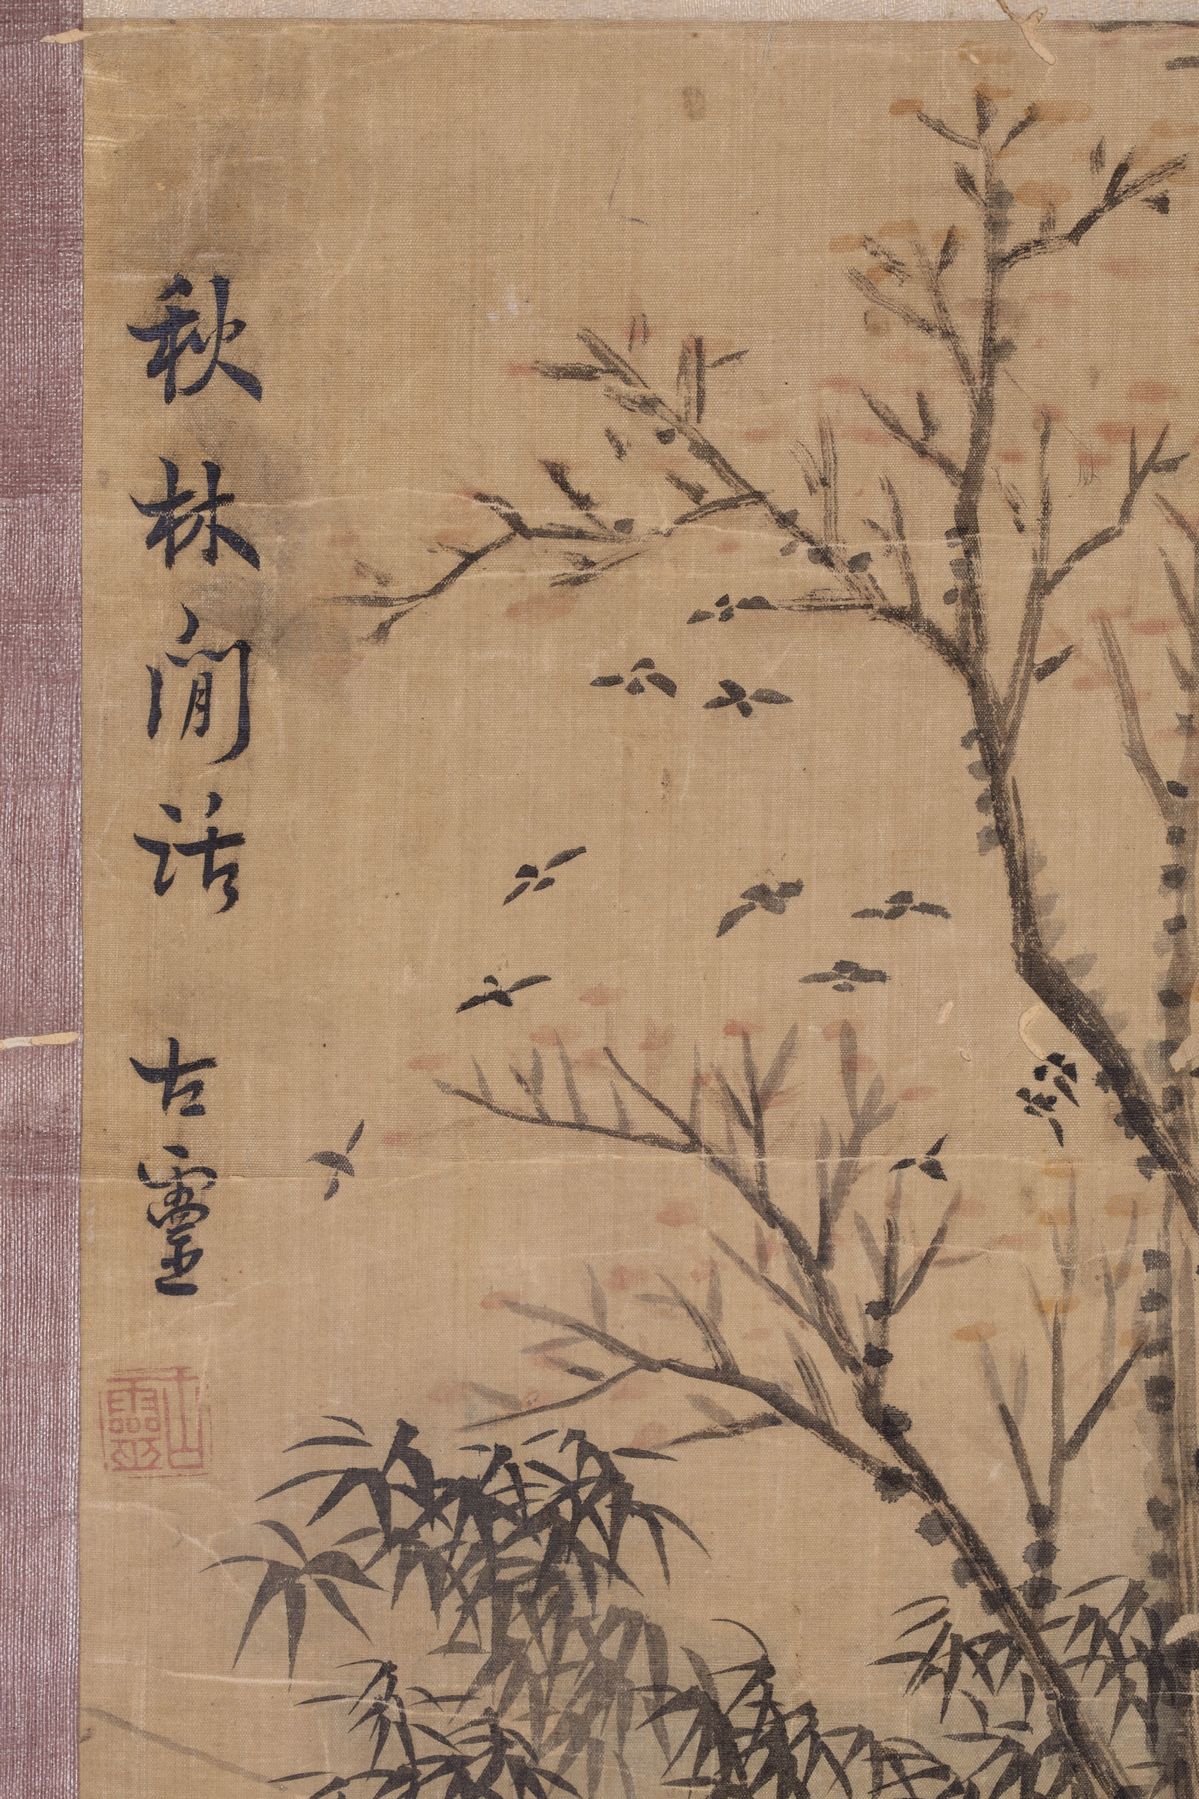 秋林閒話
古靈